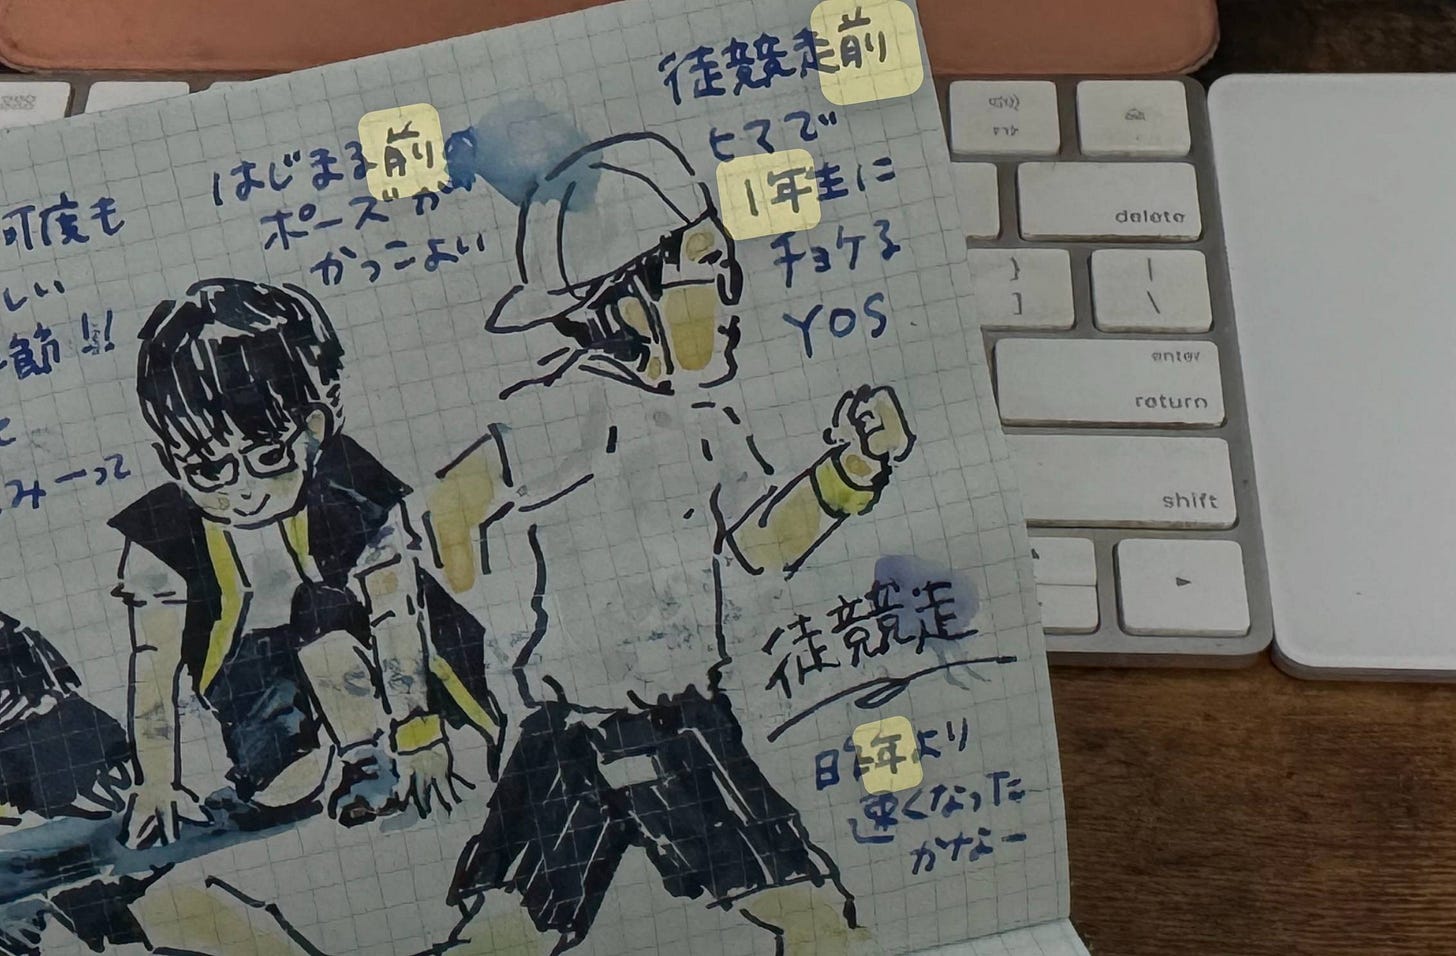 徒競走前
とてで
1年生に
チョケる
YOS
はじまる前の
ポーズが
かっこよい
何度も
しい
節!!
と
みーって
徒競走
昨年より
速くなった
かなー
delete
}
]
|
\
enter
return
shift